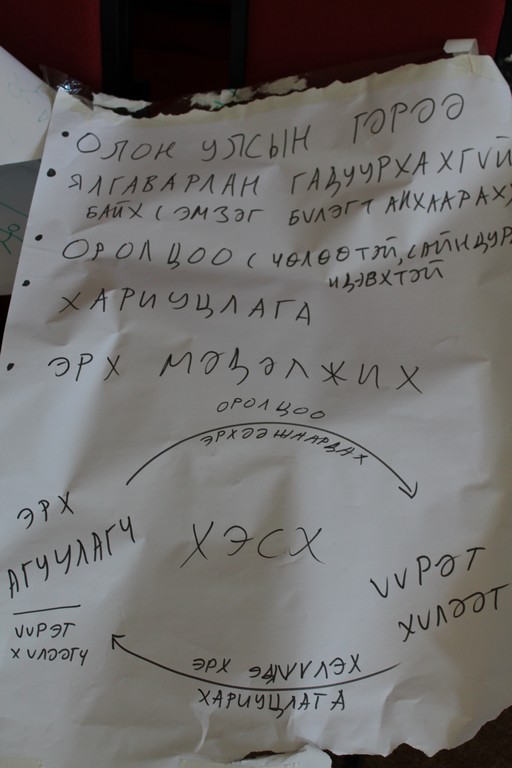 ОЛОН УЛСЫН ГЭРЭЭ
ЯЛГАВАРЛАН ГАДУУРХАХГҮЙ
БАЙХ (ЭМЗЭГ БҮЛЭГТ АНХААРАХ)
ОРОЛЦОО (ЧӨЛӨӨТЭЙ, САЙН ДУР
ИДЭВХТЭЙ
ХАРИУЦЛАГА
ЭРХ МЭДЭЛЖИХ
ОРОЛЦОО
ЭРХЭЭ ШААРДАХ
ЭРХ
АГУУЛАГЧ
ҮҮРЭГ
ХҮЛЭЭГЧ
ХЭСХ
ҮҮРЭГ
ХҮЛЭЭГ
ЭРХ ЭДЛҮҮЛЭХ
ХАРИУЦЛАГА